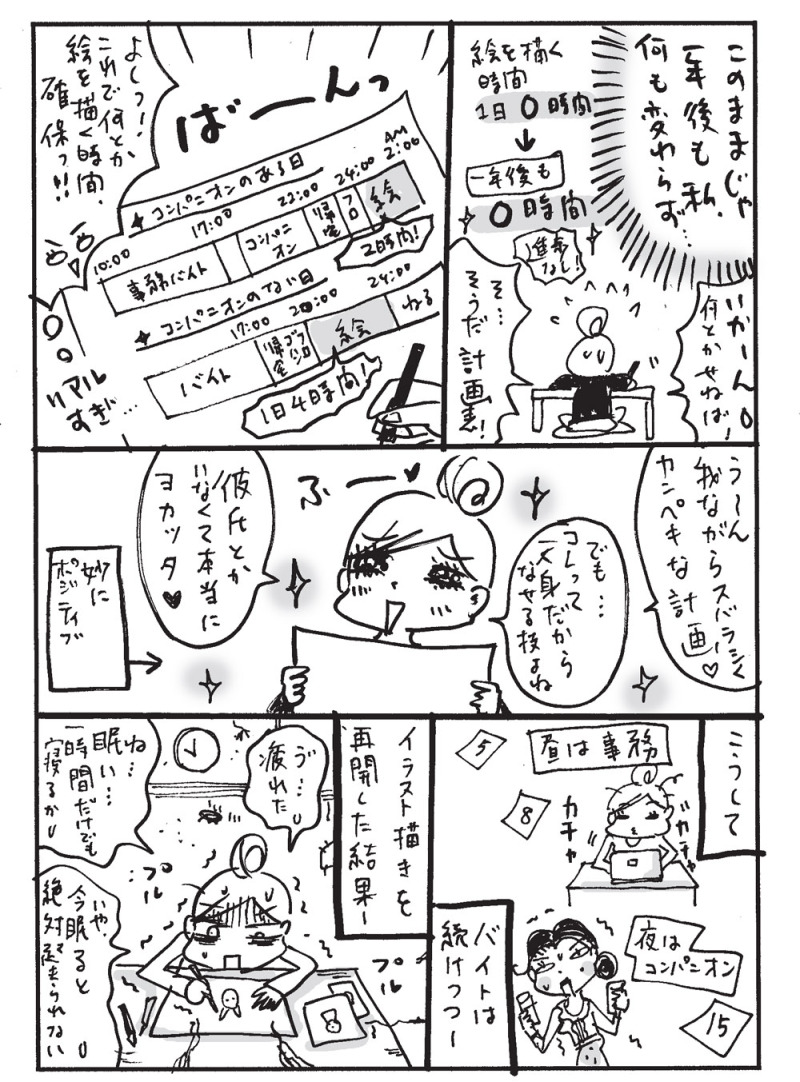 このままじゃ
一年後も私、
何も変わらず…
絵を描く
時間
1日0時間
一年後も
0時間
進歩
なし!
いかーん!
何とかせねば!
そ…
そうだ 計画表!
ばーんっ
よしっ!
これで何とか
絵を描く時間、
確保っ!!
✦コンパニオンのある日
10:00
17:00
22:00
24:00
AM
2:00
事務バイト
コンパニ
オン
帰宅
フロ
絵
2時間!
✦コンパニオンのない日
17:00
20:00
24:00
バイト
帰宅
ゴハン
フロ
絵
ねる
1日4時間!
リアル
すぎ…
うーん
我ながらスバラシく
カンペキな計画♡
でも…
コレって
独身だから
なせる技よね
ふー♥
彼氏とか
いなくて本当に
ヨカッタ♥
妙に
ポジティブ
こうして
昼は事務
カチャ
カチャ
5
8
夜は
コンパニオン
15
バイトは
続けつつー
イラスト描きを
再開した結果ー
ゔ…
疲れた
ね…
眠い…
一時間だけでも
寝るか
いや、
今眠ると
絶対起きられない
プル
プル